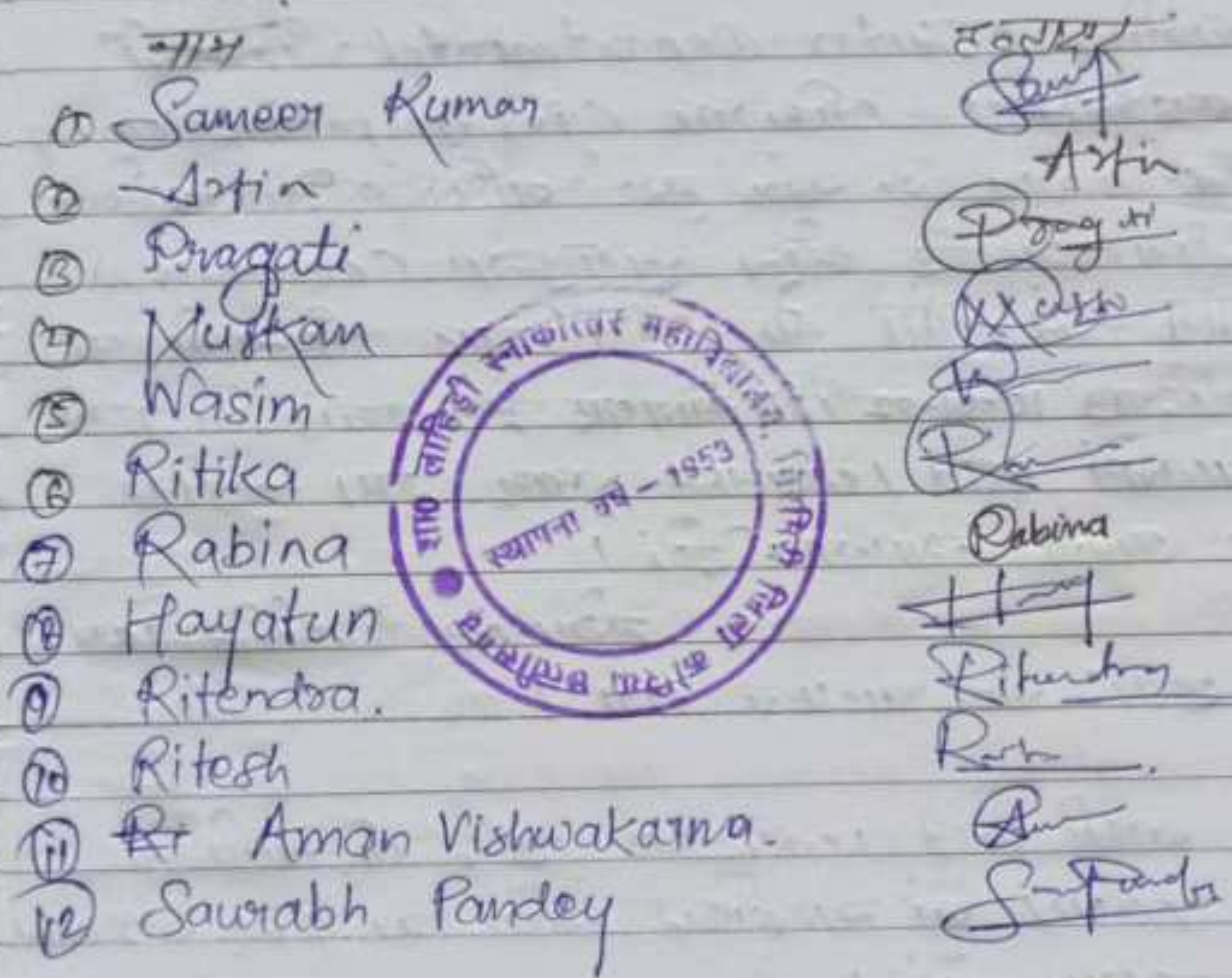 नाम हस्ताक्षर
① Sameer Kumar
② Arfin Arfin
③ Pragati Pragati
④ Muskan
⑤ Wasim
⑥ Ritika
⑦ Rabina Rabina
⑧ Hayatun
⑨ Ritendra. Ritendra
⑩ Ritesh
⑪ Aman Vishwakarma.
⑫ Saurabh Pandey
शा0 लाहिड़ी स्नाकोत्तर महाविद्यालय, चिरमिरी जिला कोरिया छत्तीसगढ़
स्थापना वर्ष - 1953